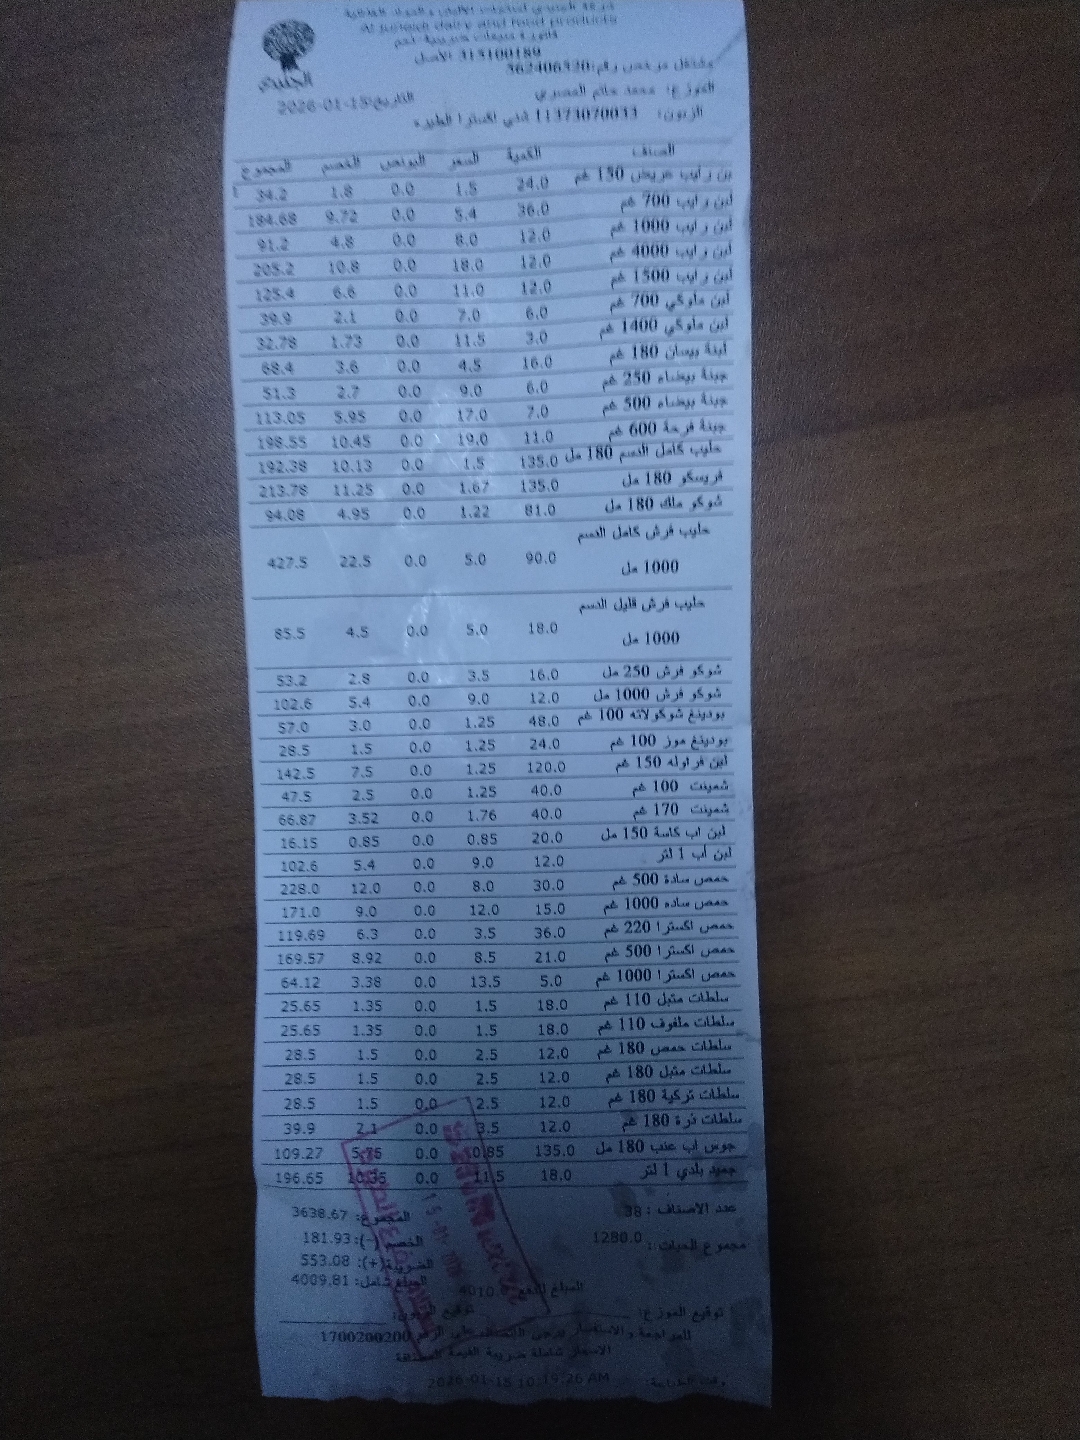 شركة الجنيدي لمنتجات الألبان والمواد الغذائية
Al Juneidi dairy and food products
فاتورة مبيعات ضريبية
315100189 الأصل
مشتغل مرخص رقم: 562406520
الموزع: محمد حاتم المصري
التاريخ: 2026-01-15
الزبون: 11373070033
الجنيدي
الصنف الكمية السعر البونص الخصم المجموع
لبن رايب عريض 150 غم 24.0 1.5 0.0 1.8 34.2
لبن رايب 700 غم 36.0 5.4 0.0 9.72 184.68
لبن رايب 1000 غم 12.0 8.0 0.0 4.8 91.2
لبن رايب 4000 غم 12.0 18.0 0.0 10.8 205.2
لبن رايب 1500 غم 12.0 11.0 0.0 6.6 125.4
لبن ملوكي 700 غم 6.0 7.0 0.0 2.1 39.9
لبن ملوكي 1400 غم 3.0 11.5 0.0 1.73 32.78
لبنة بيسان 180 غم 16.0 4.5 0.0 3.6 68.4
جبنة بيضاء 250 غم 6.0 9.0 0.0 2.7 51.3
جبنة بيضاء 500 غم 7.0 17.0 0.0 5.95 113.05
جبنة فرحة 600 غم 11.0 19.0 0.0 10.45 198.55
حليب كامل الدسم 180 مل 135.0 1.5 0.0 10.13 192.38
فريسكو 180 مل 135.0 1.67 0.0 11.25 213.78
شوكو ملك 180 مل 81.0 1.22 0.0 4.95 94.08
حليب فرش كامل الدسم
1000 مل 90.0 5.0 0.0 22.5 427.5
حليب فرش قليل الدسم
1000 مل 18.0 5.0 0.0 4.5 85.5
شوكو فرش 250 مل 16.0 3.5 0.0 2.8 53.2
شوكو فرش 1000 مل 12.0 9.0 0.0 5.4 102.6
بودينغ شوكولاته 100 غم 48.0 1.25 0.0 3.0 57.0
بودينغ موز 100 غم 24.0 1.25 0.0 1.5 28.5
لبن فراوله 150 غم 120.0 1.25 0.0 7.5 142.5
شمينت 100 غم 40.0 1.25 0.0 2.5 47.5
شمينت 170 غم 40.0 1.76 0.0 3.52 66.87
لبن اب كاسة 150 مل 20.0 0.85 0.0 0.85 16.15
لبن أب 1 لتر 12.0 9.0 0.0 5.4 102.6
حمص سادة 500 غم 30.0 8.0 0.0 12.0 228.0
حمص ساده 1000 غم 15.0 12.0 0.0 9.0 171.0
حمص اكسترا 220 غم 36.0 3.5 0.0 6.3 119.69
حمص اكسترا 500 غم 21.0 8.5 0.0 8.92 169.57
حمص اكسترا 1000 غم 5.0 13.5 0.0 3.38 64.12
سلطات متبل 110 غم 18.0 1.5 0.0 1.35 25.65
سلطات ملفوف 110 غم 18.0 1.5 0.0 1.35 25.65
سلطات حمص 180 غم 12.0 2.5 0.0 1.5 28.5
سلطات متبل 180 غم 12.0 2.5 0.0 1.5 28.5
سلطات تركية 180 غم 12.0 2.5 0.0 1.5 28.5
سلطات ذرة 180 غم 12.0 3.5 0.0 2.1 39.9
جوس اب عنب 180 مل 135.0 0.85 0.0 5.75 109.27
جميد بلدي 1 لتر 18.0 11.5 0.0 10.35 196.65
عدد الاصناف : 38 المجموع: 3638.67
مجموع الحبات : 1280.0 الخصم (-): 181.93
الضريبة(+): 553.08
المبلغ شامل: 4009.81
المبلغ للدفع 4010.0
توقيع الموزع: توقيع الزبون:
للمراجعة والاستفسار يرجى الاتصال على الرقم 1700200200
الاسعار شاملة ضريبة القيمة المضافة
وقت الطباعة: 2026-01-15 10:15:26 AM